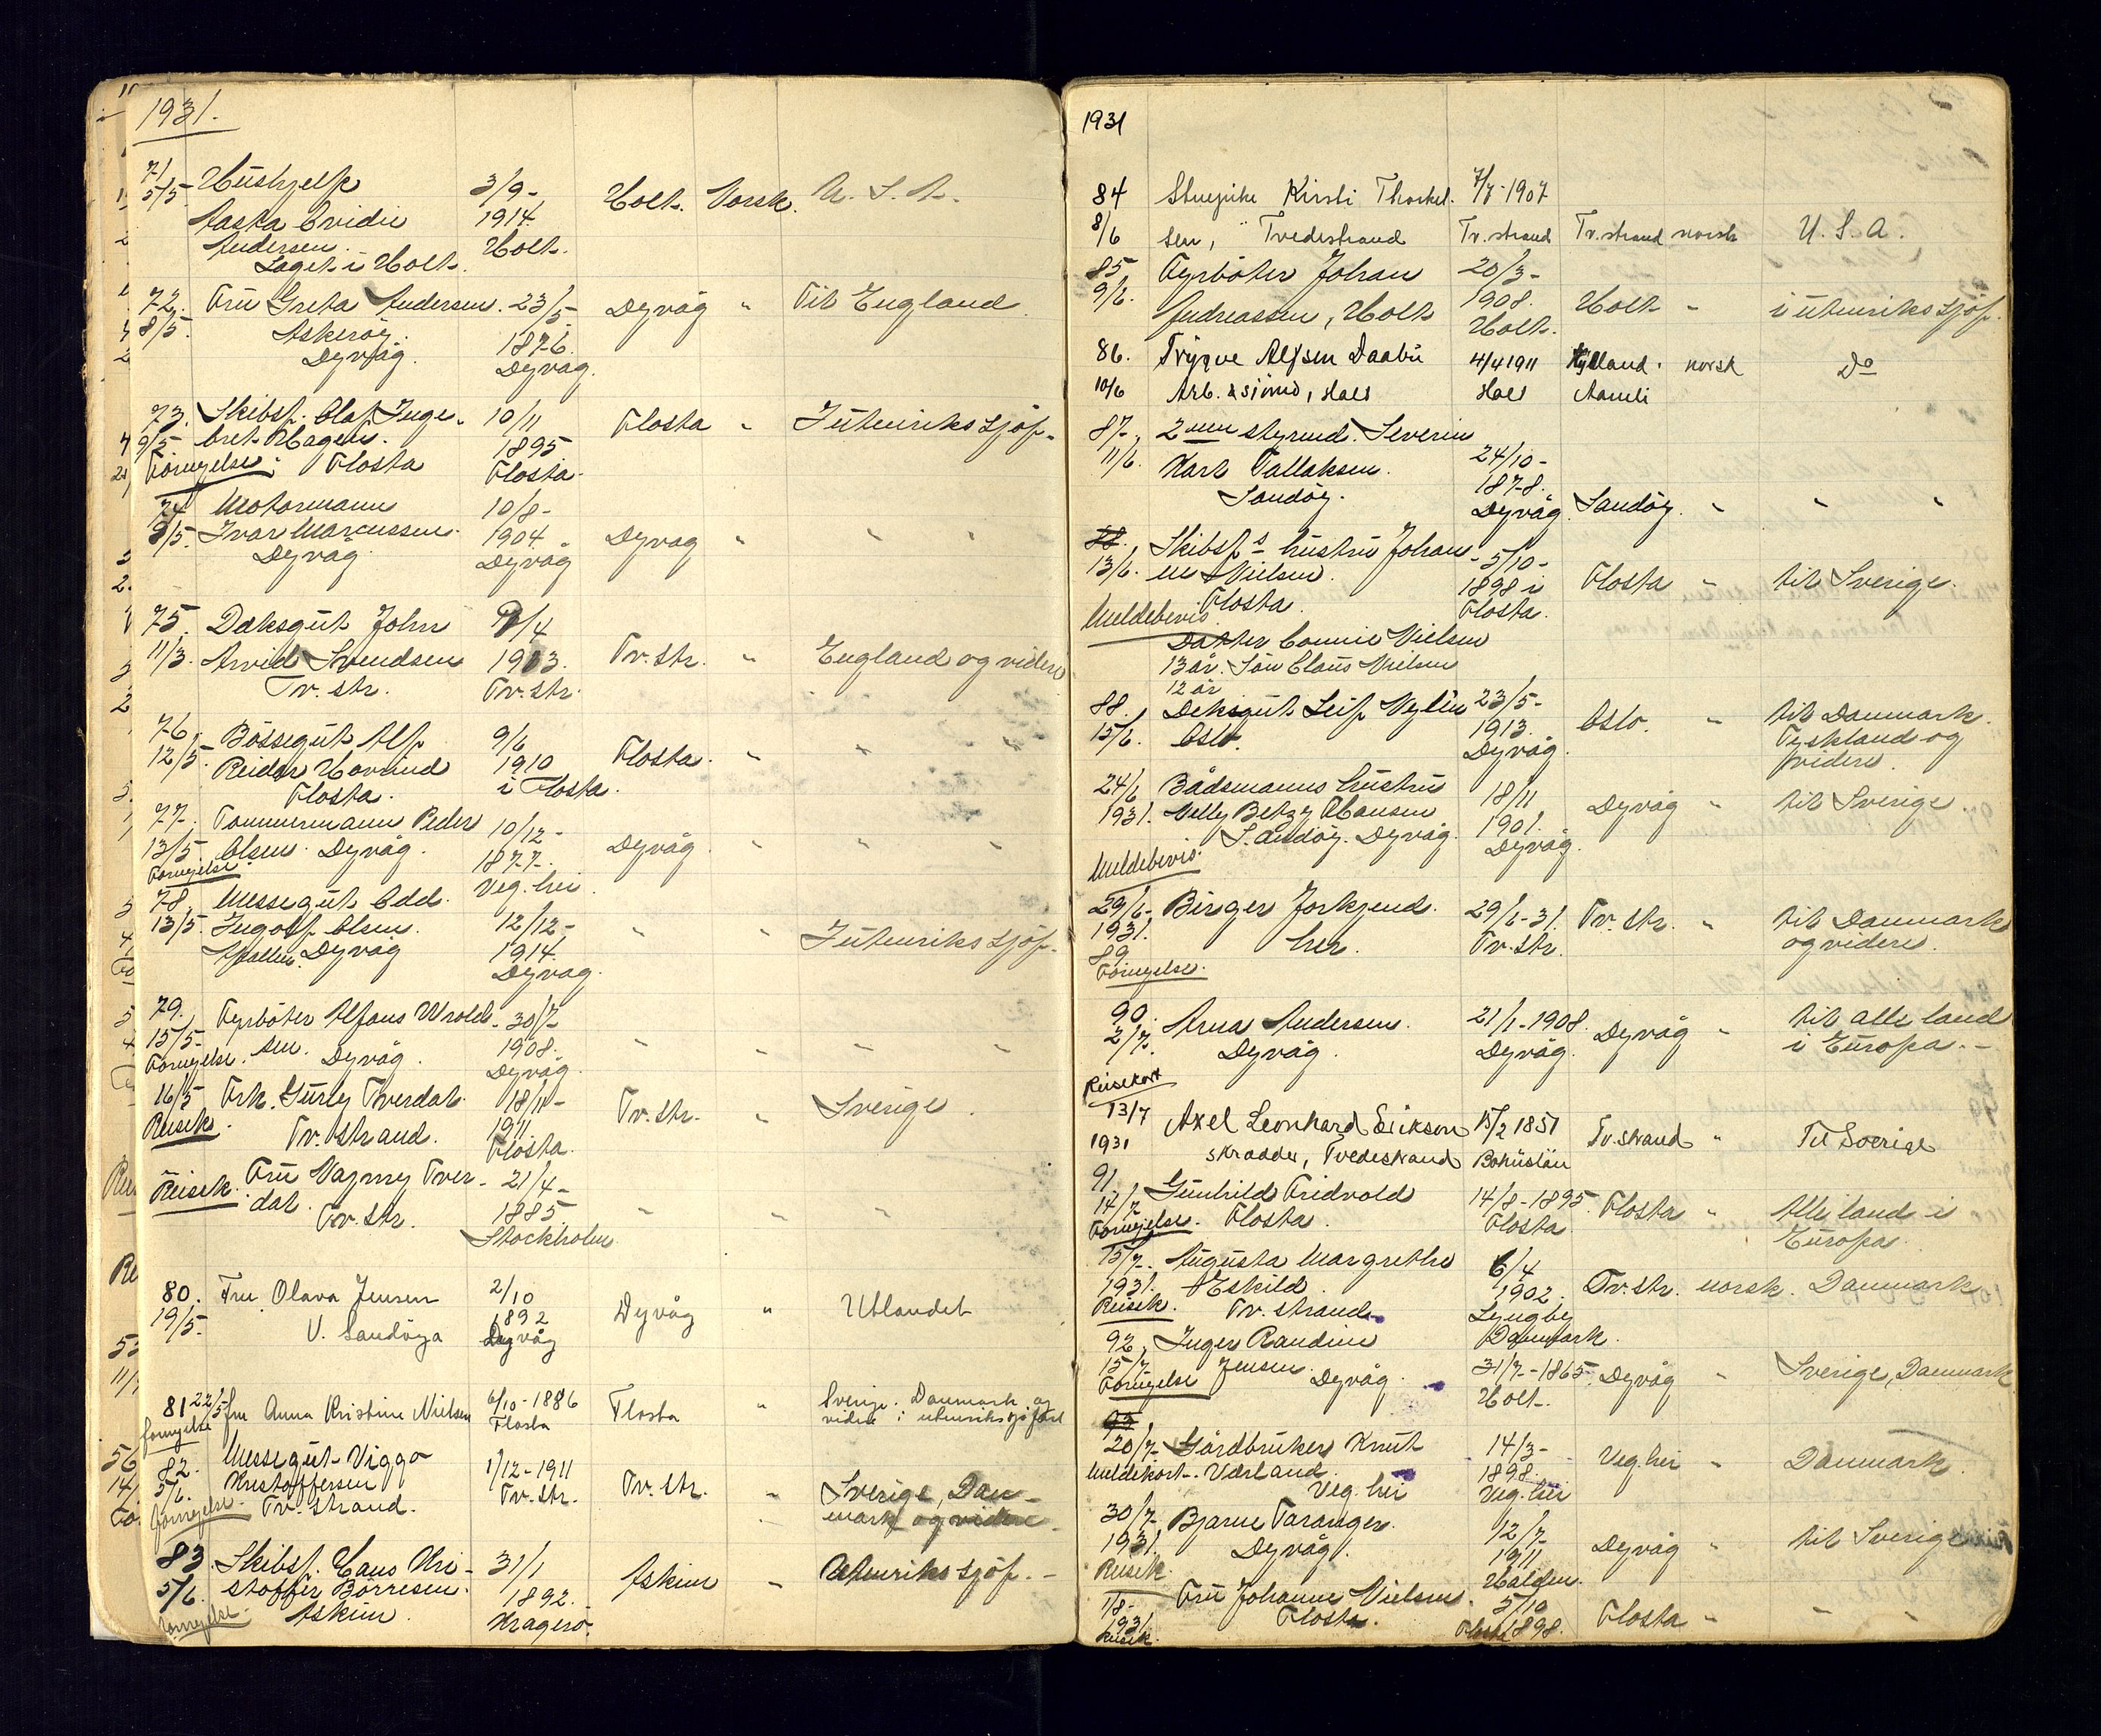 1931.
71 Hushjelp 3/9- Holt. Norsk. U. S. A.
5/5- Aasta Ovidie 1914.
Andersen. Holt.
Laget i Holt.
72. Fru Greta Andersen. 23/5- Dyvåg " Til England.
8/5. Askerøy. 1876.
Dyvåg. Dyvåg.
73. Skibsf. Olaf Inge- 10/11 Flosta " I utenriks sjöf.
9/5 bret Hagen. 1895
Fornyelse. Flosta Flosta.
74 Motormann 10/8- Dyvåg " " "
9/5. Ivar Marcussen. 1904.
Dyvåg. Dyvåg
75. Daksgut John /4 Tv. str. " England og videre
11/3. Arvid Svendsen 1913.
Tv. str. Tv. str.
76. Bössegut Alf 9/6 Flosta. " " "
12/5. Reidar Hovund 1910
Flosta. i Flosta.
77. Tommermann Peder 10/12- Dyvåg. " " "
13/5. Olsen. Dyvåg. 1877.
Fornyelse. Veg. hei.
78. Messegut Odd. 12/12- " " I utenriks sjöf.
13/5. Ingolf Olsen. 1914.
Dyvåg Dyvåg.
79. Fyrböter Alfons Wrold- 30/7- " " " "
15/5- sen. Dyvåg. 1908.
Fornyelse. Dyvåg.
16/5 Frk. Gurly Tverdal. 18/11- Tv. str. " Sverige.
Reisek. Tv. strand. 1911
Flosta.
Reisek. Fru Vagny Tver- 21/4- " " "
dal. 1885
Tv. str. Stockholm
80. Fru Olava Jensen 2/10 Dyvåg " Utlandet
19/5. V. Sandöya 1892
Dyvåg
81 22/5 fru Anna Kristine Nielsen 6/10-1886 Flosta " Sverige. Danmark og
fornyelse Flosta videre i utenriks sjöfart
82. Messegut Viggo 1/12-1911 Tv. str. " Sverige, Dan-
5/6. Kristoffersen Tv. str. mark og videre.
Fornyelse. Tv. strand.
83. Skibsf. Hans Kri- 31/1 Askim " Utenriks sjöf.-
5/6. stoffer Börresen. 1892.
Fornyelse. Askim. Kragerö.
1931
84 Stuepike Kirsti Thorkel. 7/7-1907
8/6 sen, Tvedestrand Tv. strand Tv. strand norsk U. S. A.
85 Fyrböter Johan 20/3- Holt " i utenriks sjöf.
9/6. Andreassen, Holt 1908.
Holt.
86. Trygve Alfsen Daabu 4/4 1911 norsk Do
10/6 Arb. & sjömd, Holt Aamli
87. 2nen styrmd. Severin 24/10-
11/6. Karl Tallaksen. 1878.
Sandöy. Dyvåg. Sandöy. " " "
88. Skibsf.s hustru Johan- 5/10- Flosta " til Sverige.
13/6. ne Nielsen. 1898 i
Flosta. Flosta.
Meldebevis.
Datter Connie Nielsen
13 år. Sön Claus Nielsen
12 år
88. Deksgut Leif Nylün 23/5- Oslo. " til Danmark.
15/6. Oslo. 1913. Tyskland og
Dyvåg. videre.
24/6 Bådsmanns hustru 18/11 Dyvåg " til Sverige.
1931. Nelly Betzy Hansen 1901.
Sandöy. Dyvåg. Dyvåg.
Meldebevis.
29/6- Birger Jorkjend. 29/6-31. Tv. str. " til Danmark
1931. her. Tv. str. og videre.
89
Fornyelse.
90. Arna Andersen. 21/1-1908. Dyvåg " til alle land
2/7. Dyvåg. Dyvåg. i Europa.-
Reisekort
13/7 Axel Leonhard Erikson 15/2 1851 Tv. strand " Til Sverige
1931 skradder, Tvedestrand Bohuslän
91 Gunhild Fridvold 14/8-1895. Flosta " Alle land i
14/7 Flosta. Flosta Europa.
Fornyelse.
15/7. Augusta Margrethe 6/4 Tv. str. norsk. Danmark
1931. Eskild. 1902.
Reisek. Tv. strand. Lyngby
Danmark.
92. Inger Randine 31/7-1865 Dyvåg " Sverige, Danmark
15/7. Jensen. Dyvåg. Holt.
Fornyelse
93
20/7- Gårdbruker Knut 14/3- Veg. hei " Danmark
Meldekort. Værland. 1898.
Veg. hei Veg. hei
30/7- Bjarne Taranger. 12/7- Dyvåg " til Sverige
1931. Dyvåg. 1911
Reisek. Halden.
1/8- Fru Johanne Nielsen. 5/10 Flosta " " "
1931. Flosta. Flosta 1898.
Reisek.